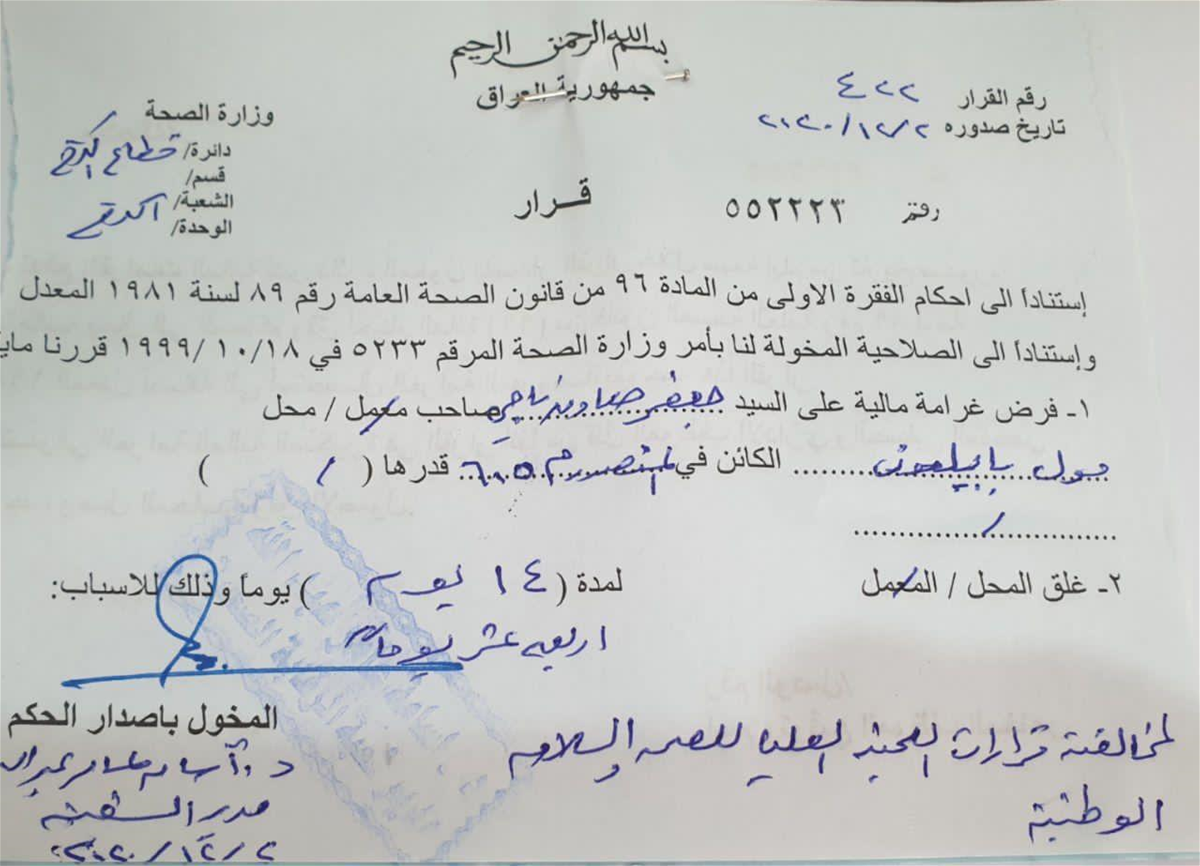 بسم الله الرحمن الرحيم
جمهورية العراق
رقم القرار ٤٢٢
تاريخ صدوره ٢٠٢٠/١٢/٢
وزارة الصحة
دائرة/ قطاع الكرخ
قسم/
الشعبة/
الوحدة/
رقم ٥٥٢٢٢٣
قرار
إستناداً الى احكام الفقرة الاولى من المادة ٩٦ من قانون الصحة العامة رقم ٨٩ لسنة ١٩٨١ المعدل
وإستناداً الى الصلاحية المخولة لنا بأمر وزارة الصحة المرقم ٥٢٣٣ في ١٨/ ١٠/ ١٩٩٩ قررنا ماي
١- فرض غرامة مالية على السيد جعفر ناجي صاحب معمل / محل
مول بابيلون الكائن في المنصور م ٦٠٥ قدرها ( / )
/
٢- غلق المحل / المعمل لمدة ( ١٤ يوم ) يوماً وذلك للاسباب:
اربعة عشر يوماً
المخول باصدار الحكم
لمخالفته قرارات اللجنة العليا للصحة والسلامة
الوطنية
د.
مدير الشعبة
٢٠٢٠/١٢/٢